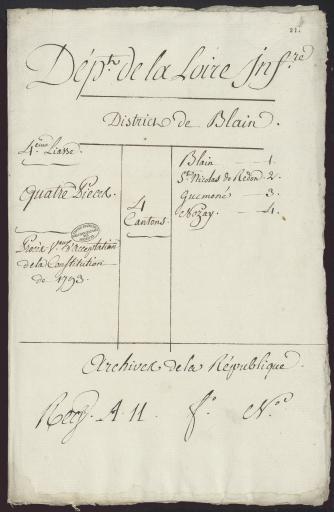 21.
Dép.t de la Loire Inf.re
District de Blain.
4.eme Liasse.
Quatre Pieces.
Procès V.aux d'acceptation
de la Constitution
de 1793
4
Cantons.
Blain 1.
St Nicolas de Redon 2.
Guemené 3.
Nozay 4.
Archives de la République.
A. 11 f.o N.o